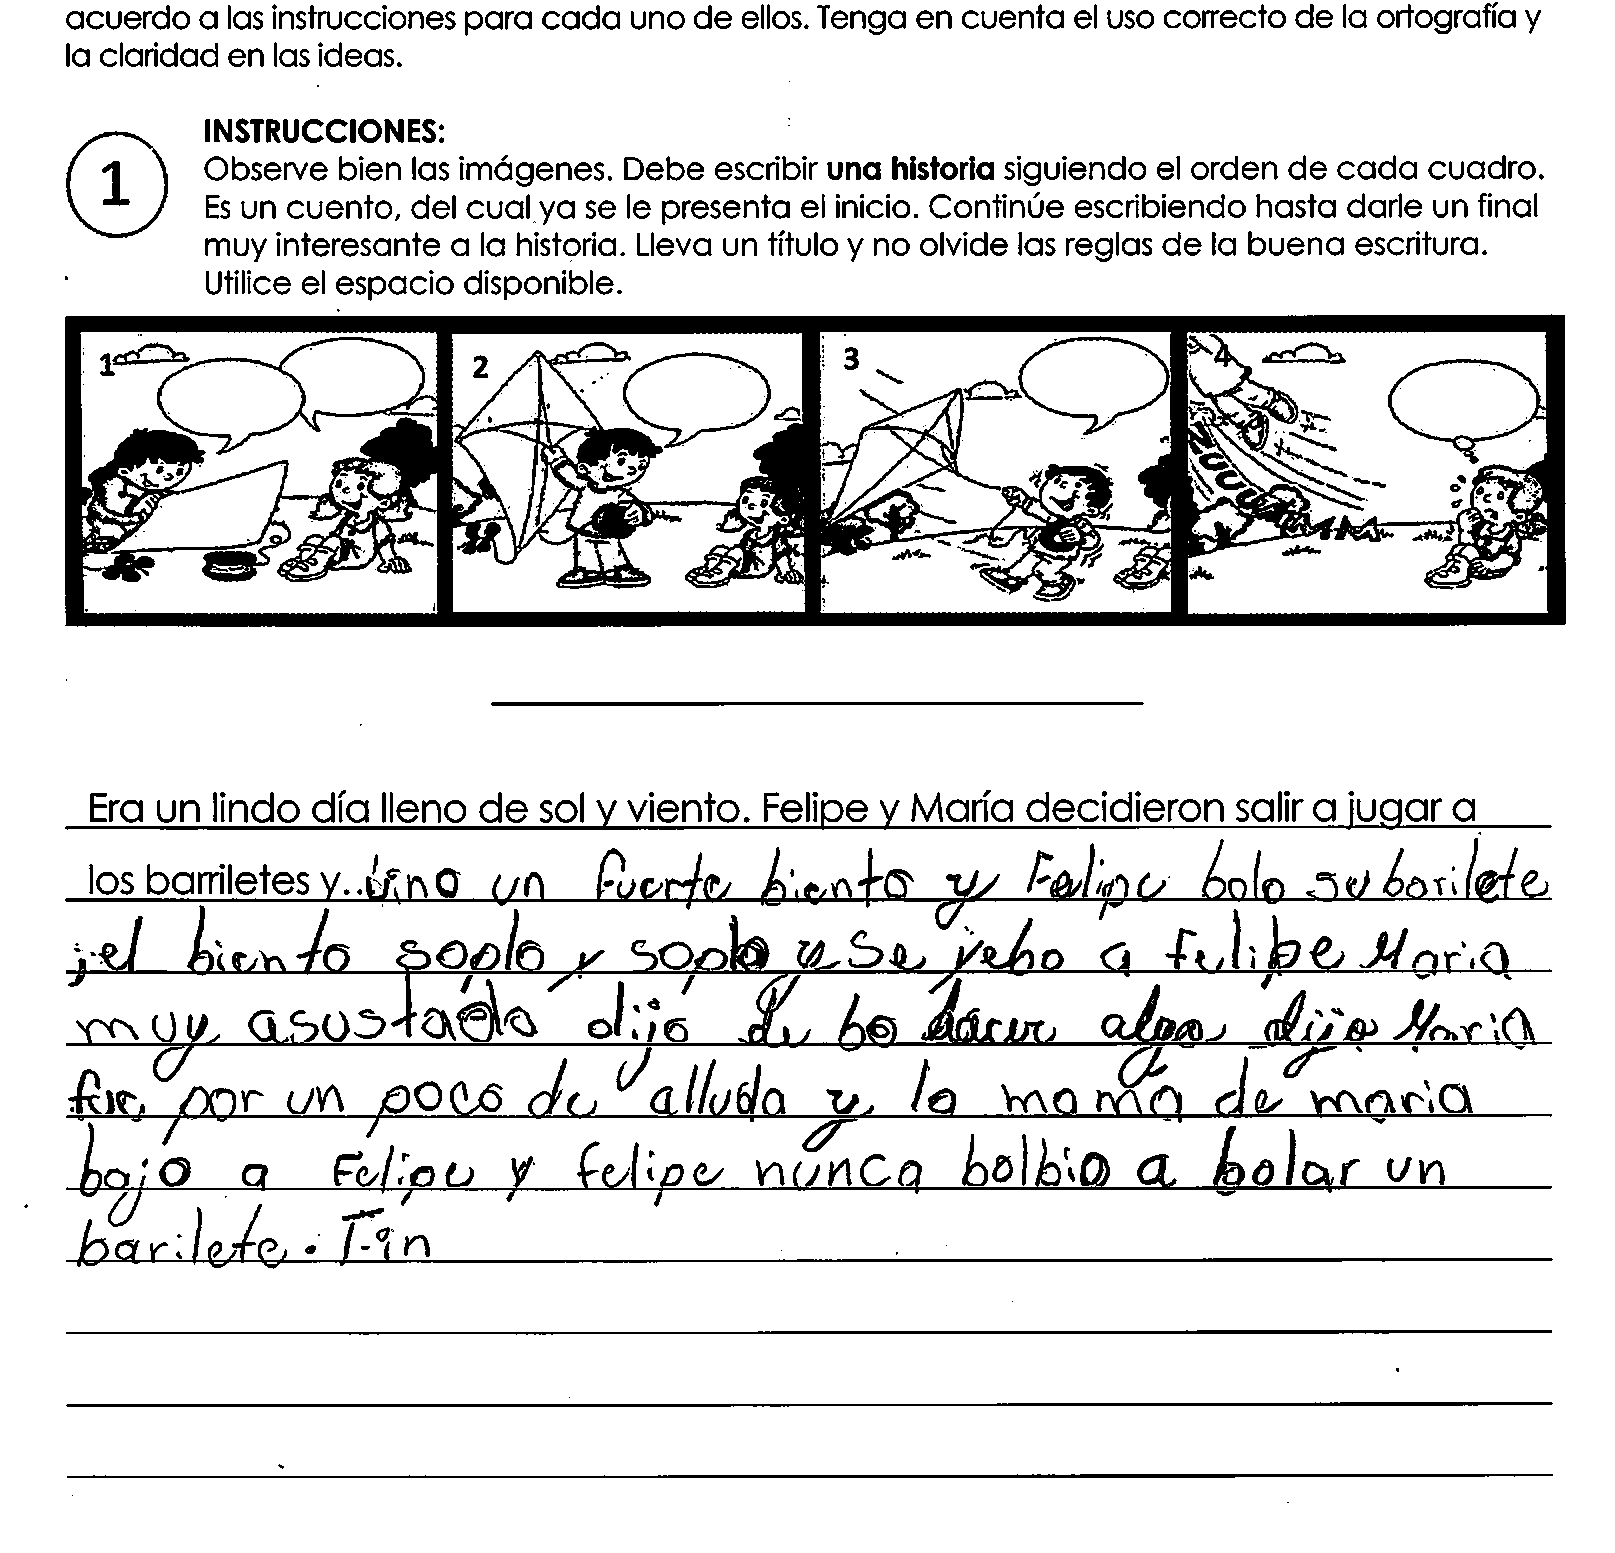 acuerdo a las instrucciones para cada uno de ellos. Tenga en cuenta el uso correcto de la ortografía y
la claridad en las ideas.
1
INSTRUCCIONES:
Observe bien las imágenes. Debe escribir una historia siguiendo el orden de cada cuadro.
Es un cuento, del cual ya se le presenta el inicio. Continúe escribiendo hasta darle un final
muy interesante a la historia. Lleva un título y no olvide las reglas de la buena escritura.
Utilice el espacio disponible.
1 2 3 4
ZUUUUMMM
Era un lindo día lleno de sol y viento. Felipe y María decidieron salir a jugar a
los barriletes y...vino un fuerte biento y Felipe bolo su barilete
;el biento soplo y soplo y se yebo a Felipe Maria
muy asustada dijo de bo hacer algo dijo Maria
fue por un poco de alluda y la mamá de maria
bajo a Felipe y felipe nunca bolbio a bolar un
barilete. Fin